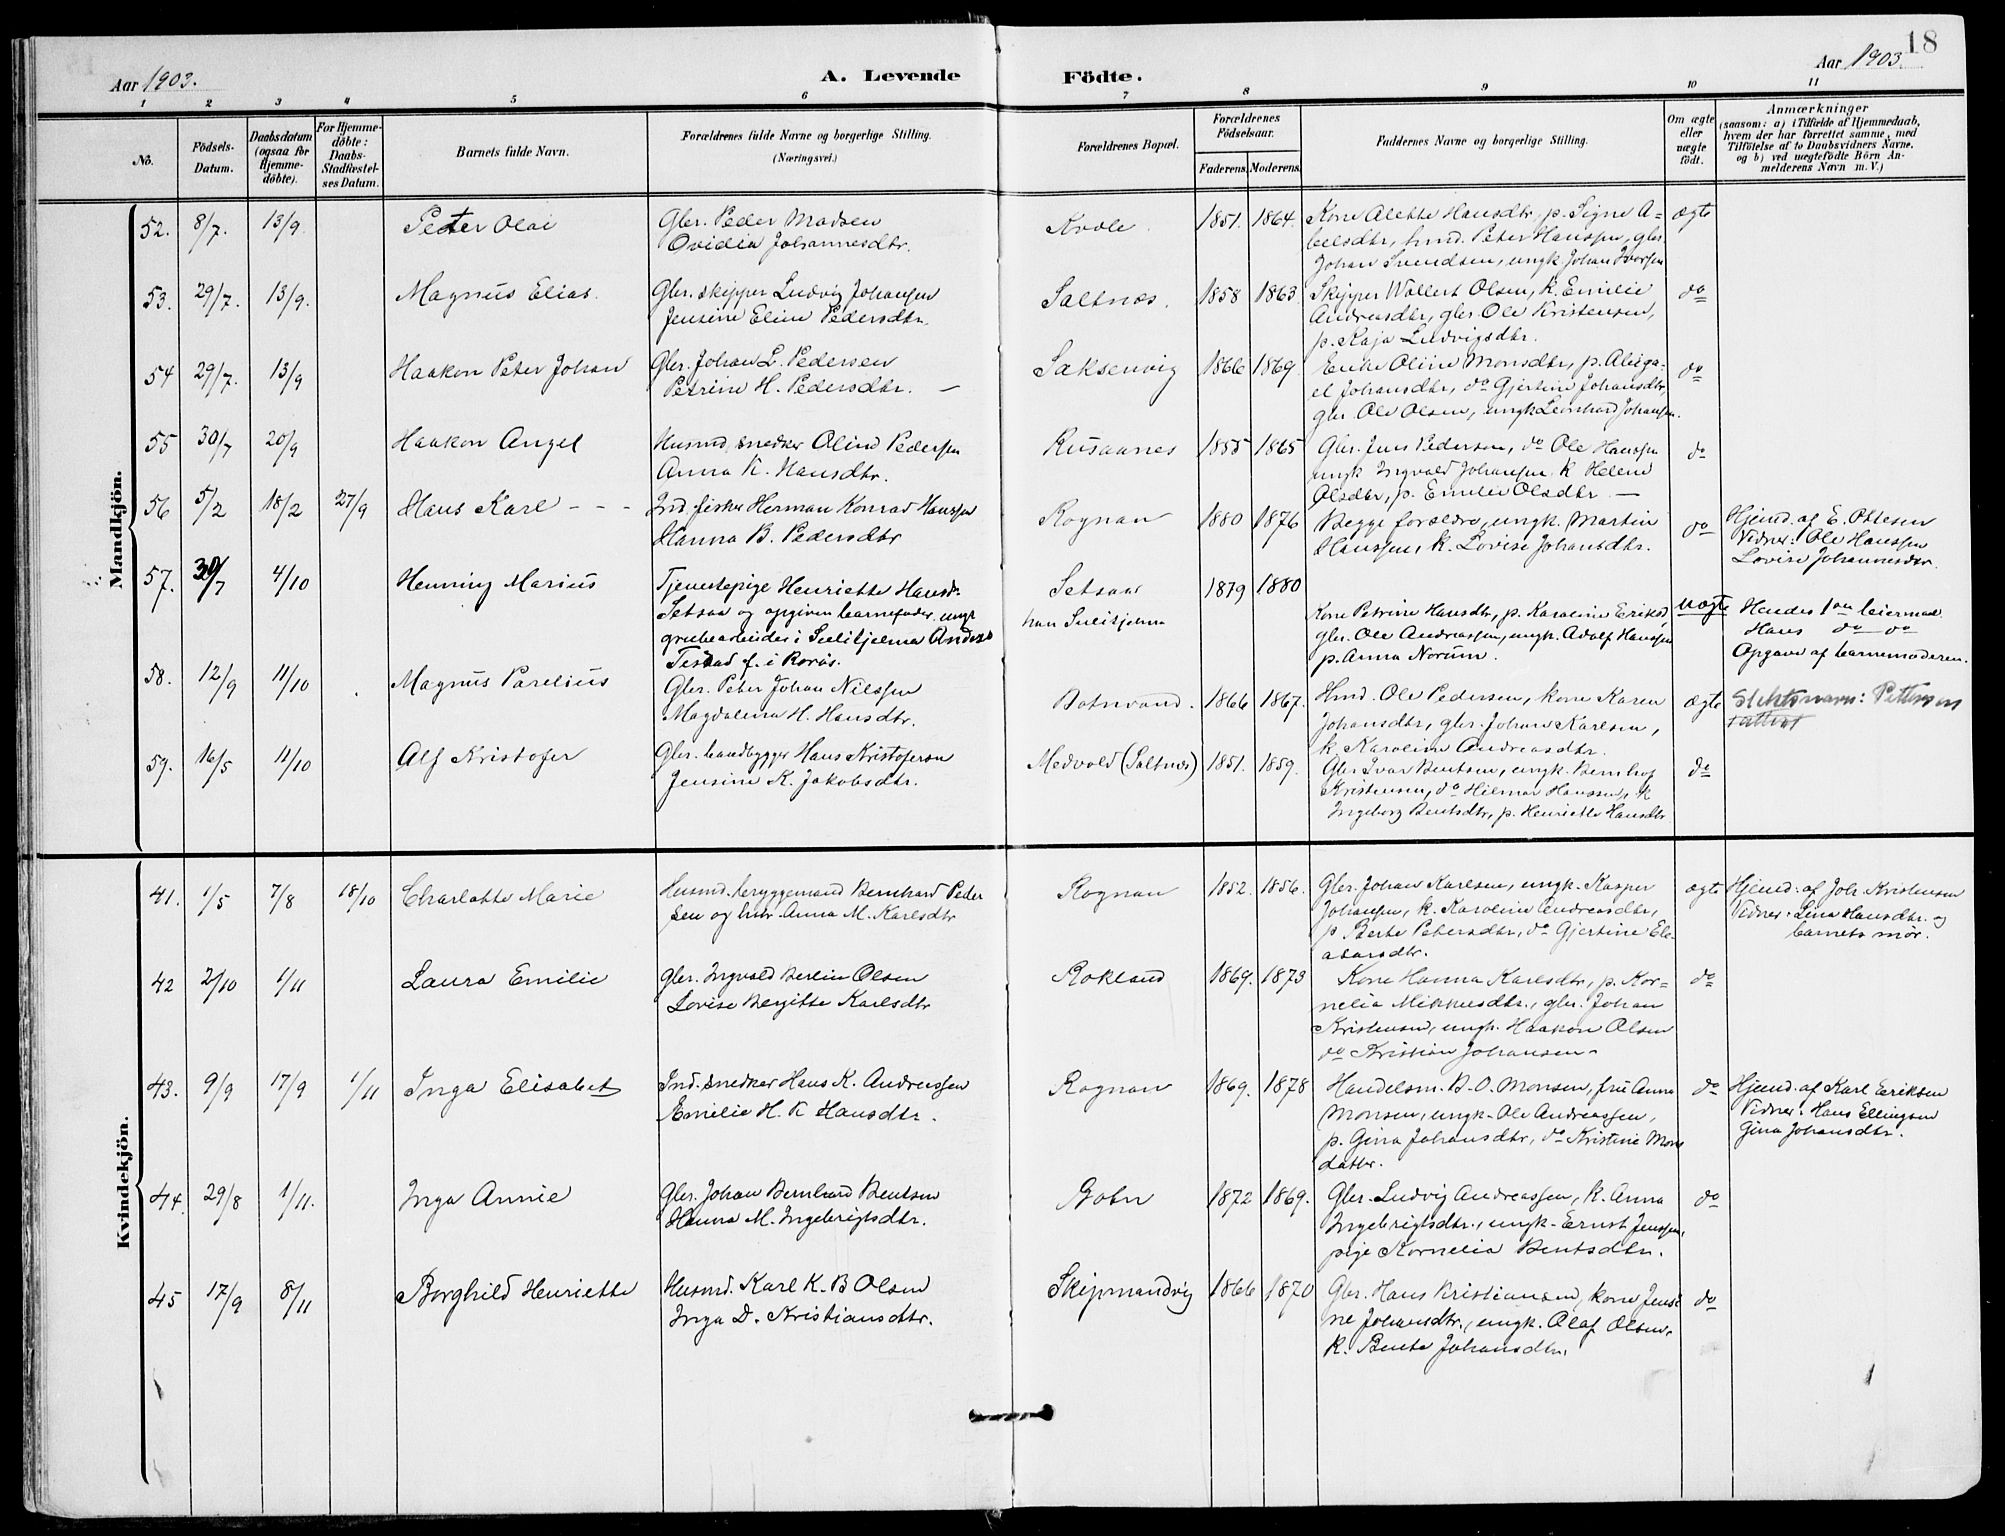 18
Aar 1903. A. Levende Födte. Aar 1903.
1 2 3 4 5 6 7 8 9 10 11
No.
Födsels-Datum.
Daabsdatum (ogsaa for Hjemme-döbte).
For Hjemme-döbte: Daabs-Stadfæstel-ses Datum.
Barnets fulde Navn.
Forældrenes fulde Navne og borgerlige Stilling. (Næringsvei.)
Forældrenes Bopæl.
Forældrenes Födselsaar.
Faderens. Moderens.
Faddernes Navne og borgerlige Stilling.
Om ægte eller uægte födt.
Anmærkninger
(saasom: a) i Tilfælde af Hjemmedaab, hvem der har forrettet samme, med Tilföielse af to Daabsvidners Navne, og b) ved uægtefödte Börn An-melderens Navn m. V.)
Mandkjön.
52. 8/7. 13/9 Peter Olai
Gbr. Peder Madsen
Ovidia Johannesdtr.
Kvole 1851. 1864.
Kone Alette Hansdtr, p. Signe A=
belsdtr, hmd. Peter Hanssen, gbr.
Johan Svendsen, ungk Johan Ivarsen
ægte
53. 29/7. 13/9. Magnus Elias.
Gbr. skipper Ludvig Johansen
Jensine Eline Pedersdtr.
Saltnes. 1858 1863
Skipper Wallert Olsen, k. Emilie
Andreasdtr, gbr Ole Kristensen,
p. Kaja Ludvigsdtr.
do
54 29/7. 13/9 Haakon Peter Johan
Gbr. Johan L. Pedersen
Petrine H. Pedersdtr. —
Saksenvig 1866 1869.
Enke Oline Monsdtr, p. Abiga-
el Johansdtr, do Gjertine Johansdtr,
gbr. Ole Olsen, ungk Leonhard Johansen.
do
55 30/7 20/9 Haakon Angel
Husmd. snedker Olind Pedersen
Anna K. Hansdtr.
Rusaanes 1855 1865
Gbr. Jens Pedersen, do Ole Hanssen
ungk Ingvald Johansen. k Helene
Olsdtr, p. Emilie Olsdtr —
do
56 5/2 18/2 27/9 Hans Karl - - -
Ind. fisker Herman Konrad Hanssen
Hanna B. Pedersdtr
Rognan 1880 1876
Begge forældre, ungk. Martin
Hanssen, k. Lovise Johansdtr.
do
Hjemd. af E. Ottesen
Vidner: Ole Hanssen
Lovise Johannesdtr.
57. 30/7 4/10 Henning Marius
Tjenestepige Henriette Hansdr.
Setsaa og opgiven barnefader ungk
grubearbeider i Sulitjelma Anders
Tisdad f. i Roros.
Setsaa
han Sulitjelma
1879 1880
Kone Petrine Hansdtr, p. Karoline Eriksd,
gbr. Ole Andreassen, ungk. Adolf Hanssen
p. Anna Norum.
uægte
Hendes 1ste leiermaal
Hans do do
Opgave af barnemoderen.
58. 12/9 11/10 Magnus Parelius
Gbr. Peter Johan Nilssen
Magdalena H. Hansdtr.
Botnvand. 1866 1867.
Hmd. Ole Pedersen, kone Karen
Johansdtr, gbr. Johan Karlsen,
k. Karoline Andreasdtr.
ægte
Slektsnavn: Pettersen
59. 16/5 11/10 Alf Kristofer
Gbr. baadbygger Hans Kristofersen
Jensine K. Jakobsdtr.
Medvold (Saltnes) 1851. 1859.
Gbr Ivar Bentsen, ungk. Bernhof
Kristensen, do Hilmar Hanssen, k
Ingeborg Bentsdtr, p. Henriette Hansdtr
do
Kvindekjön.
41. 1/5 7/8 18/10 Charlotte Marie
Husmd. bryggemand Bernhard Peder
sen og hstr. Anna M. Karlsdtr
Rognan 1852. 1856.
Gbr. Johan Karlsen, ungk. Kasper
Johansen, k. Karoline Andreasdtr,
p. Berte Petersdtr, do Gjertine Ele-
asarsdtr.
ægte
Hjemd. af Joh. Kristensen
Vidner: Lina Hansdtr. og
barnets mor.
42 2/10 1/11 Laura Emilie
Gbr. Ingvald Berlin Olsen
Lovise Bergitte Karlsdtr
Rokland 1869. 1873
Kone Hanna Karlsdtr, p. Kor=
nelia Mikkelsdtr., gbr. Johan
Kristensen, ungk. Haakon Olsen
do Kristian Johansen.
do
43. 9/9 17/9 1/11 Inga Elisabet
Ind. snedker Hans K. Andreassen
Emilie H. K Hansdtr.
Rognan 1869. 1878
Handelsm. B. O. Monsen, frue Anna
Monsen, ungk. Ole Andreassen,
p. Gina Johansdtr, do Kristine Mons
datter.
do
Hjemd. af Karl Eriksen
Vidner: Hans Ellingsen
Gina Johansdtr.
44. 29/8 1/11. Inga Annie
Gbr. Johan Bernhard Bentsen
Hanna M. Ingebrigtsdtr.
Botn 1872 1869.
Gbr. Ludvig Andreassen, k. Anna
Ingebrigtsdtr., ungk. Ernst Jenssen,
pige Kornelia Bentsdtr.
do
45 17/9 8/11 Borghild Henriette
Husmd. Karl K. B Olsen
Inga D. Kristiansdtr.
Skipmandvig 1866 1870
Gbr. Hans Kristiansen, kone Jensi
ne Johansdtr., ungk. Olaf Olsen,
k. Bente Johansdtr.
do